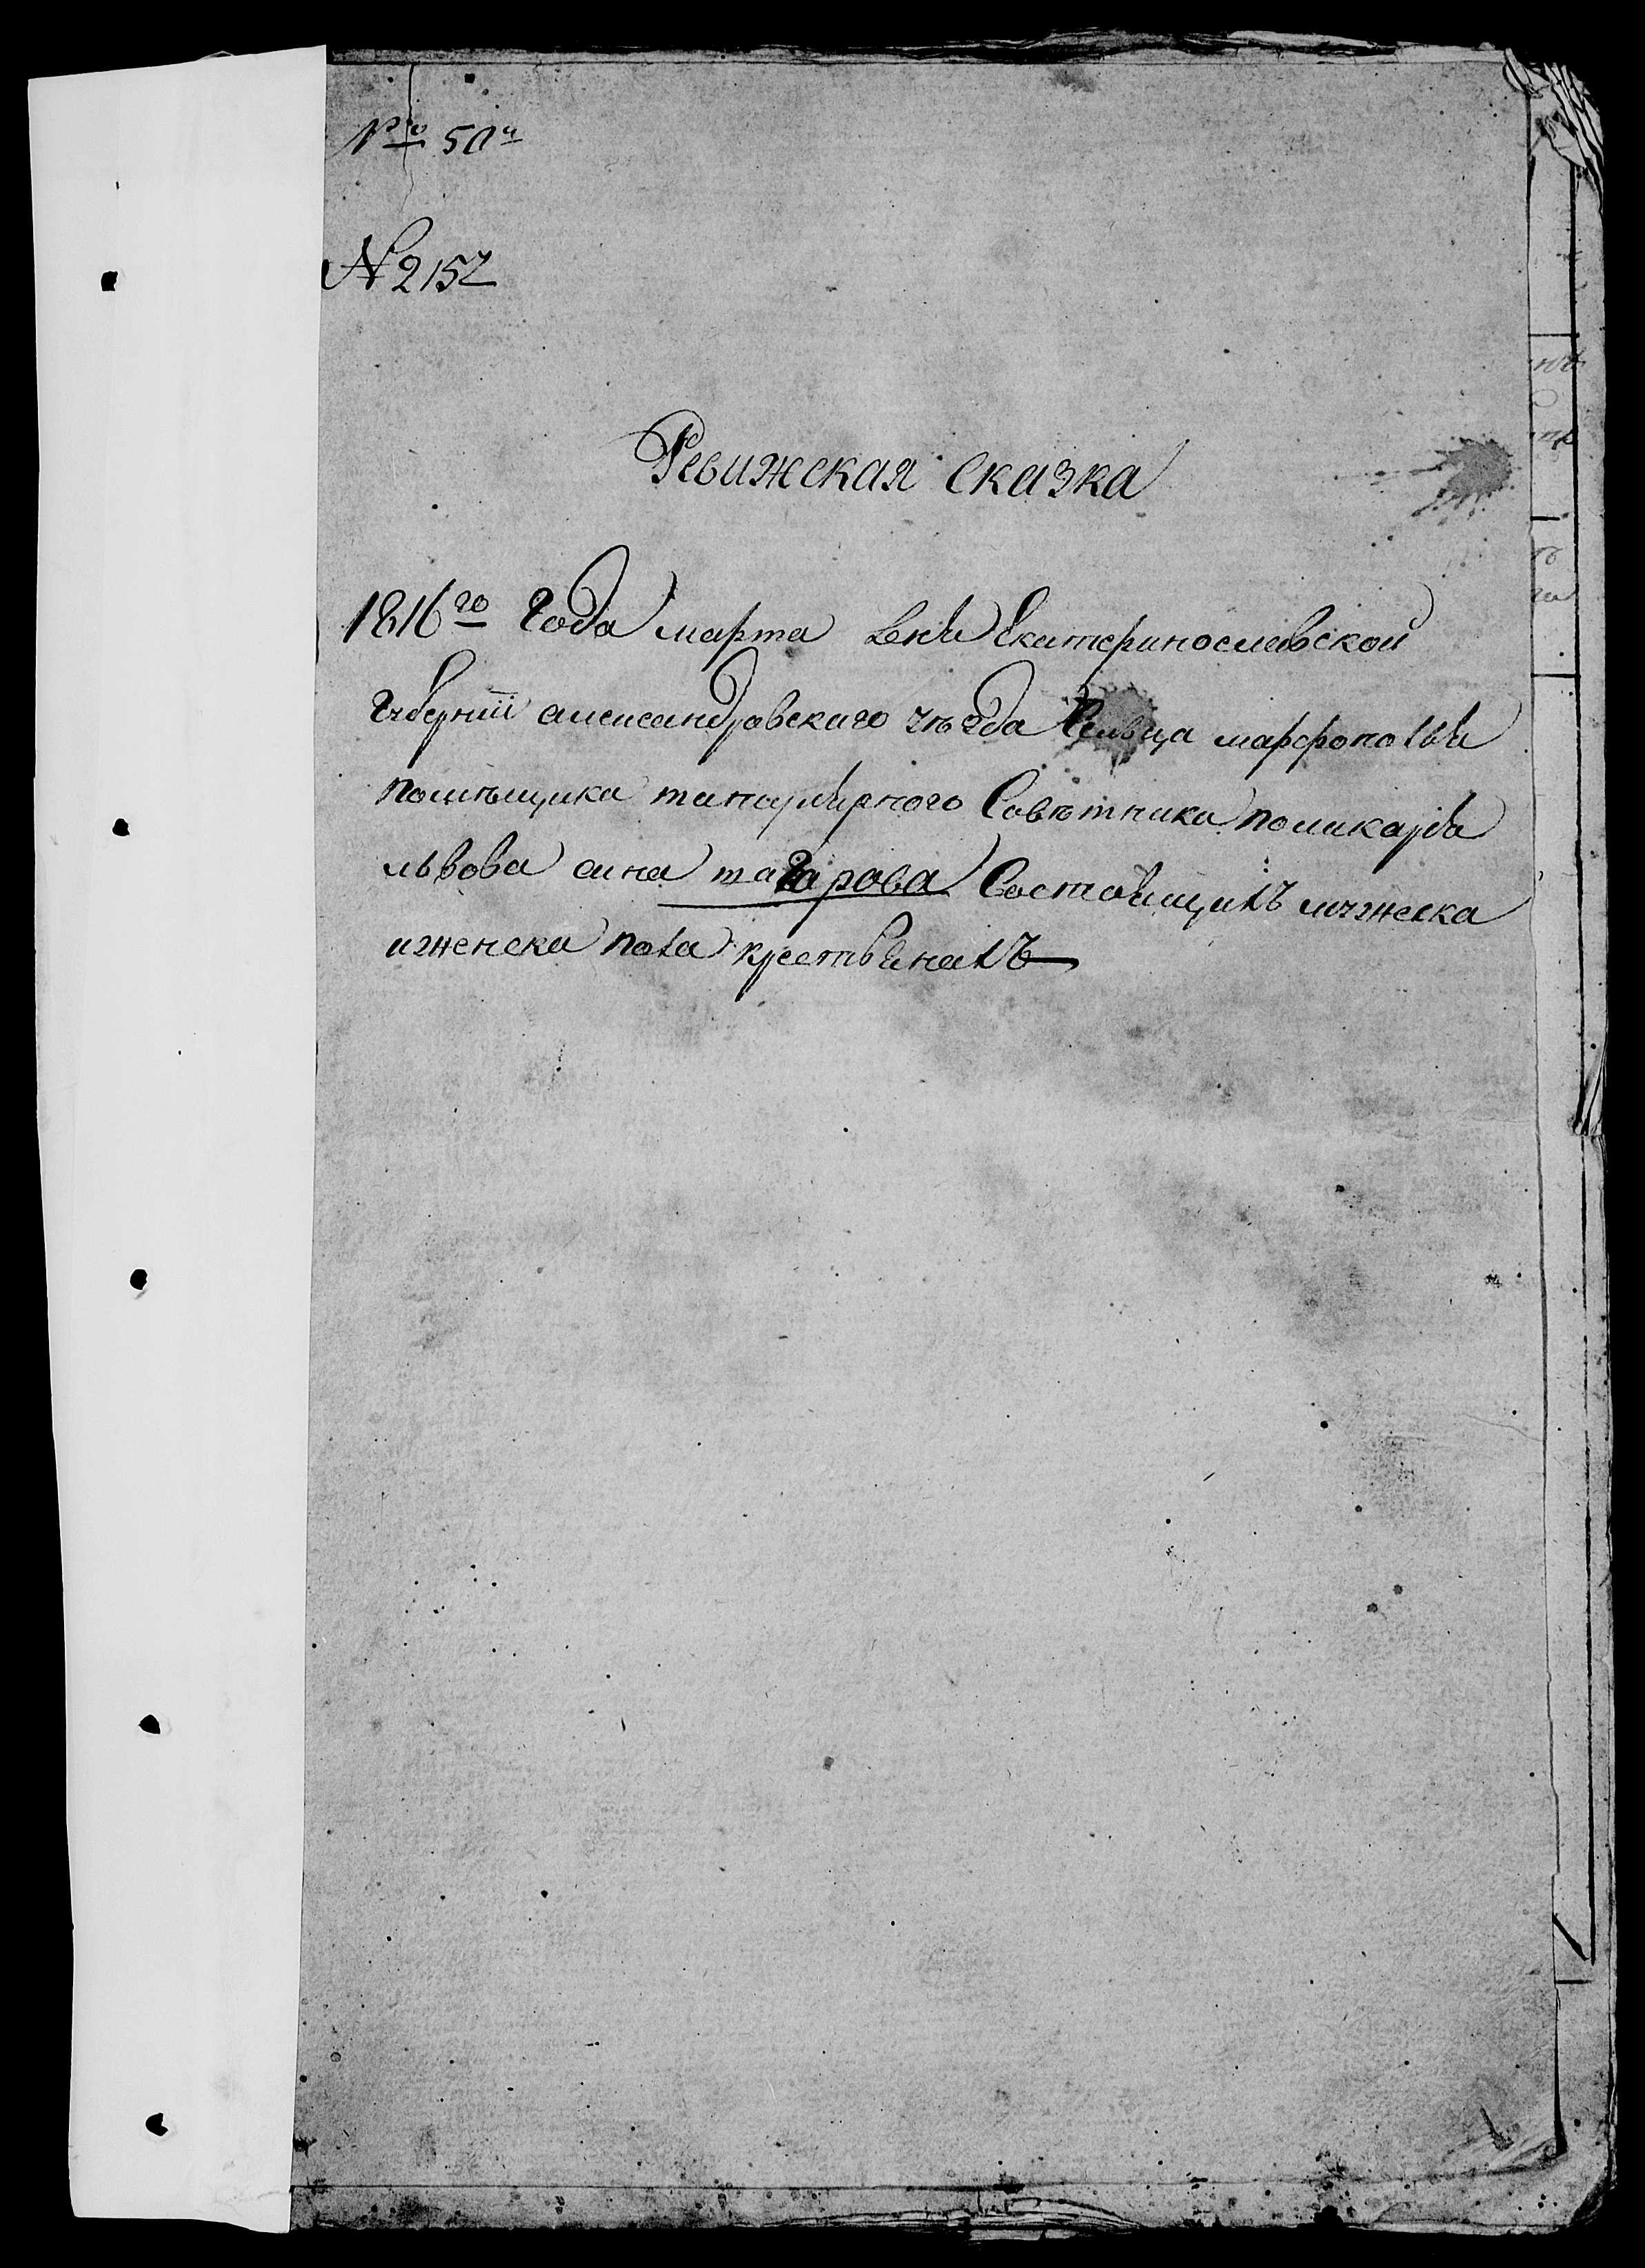 № 50й
N 2152
Ревижская сказка
1816го Года марта дня Екатеринославской
Губернiи александровскаго уезда Селца марфополья
помѣщика титулярного Совѣтника поликарпа
львова сина тагарова Состоящихъ мужеска
и женска пола крестьянахъ